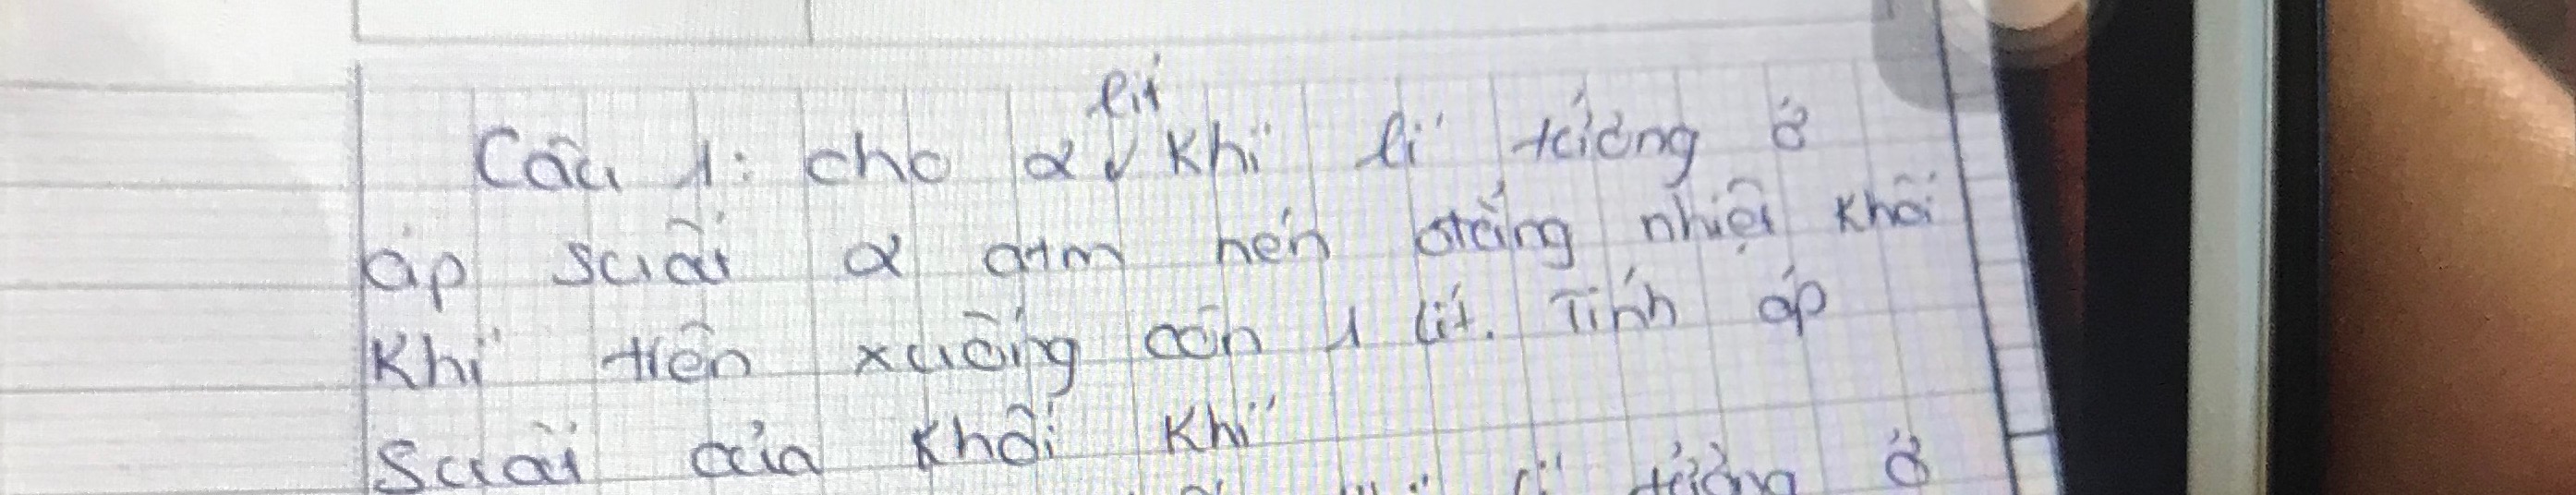 Câu 1: cho 2 lít khí lí tưởng ở
áp suất 2 atm nén đẳng nhiệt khối
khí trên xuống còn 1 lít. Tính áp
suất của khối khí
tưởng ở